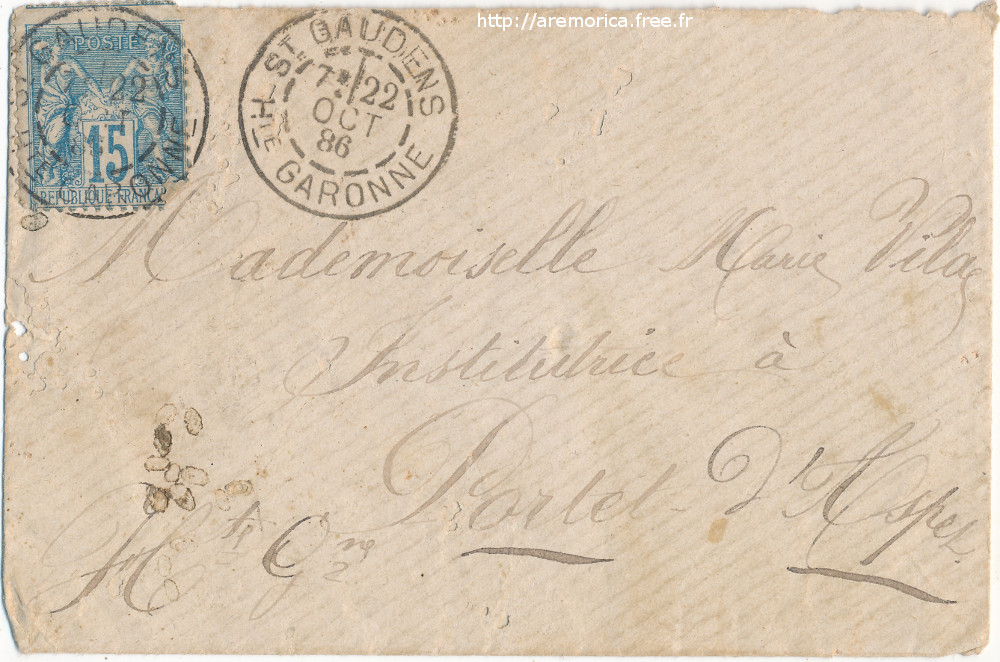 http://aremorica.free.fr
POSTE
15
REPUBLIQUE FRANÇA
ST GAUDENS
7E 22
OCT
86
HTE GARONNE
Mademoiselle Marie
Institutrice à
Portet d'Aspet
Hte Gne